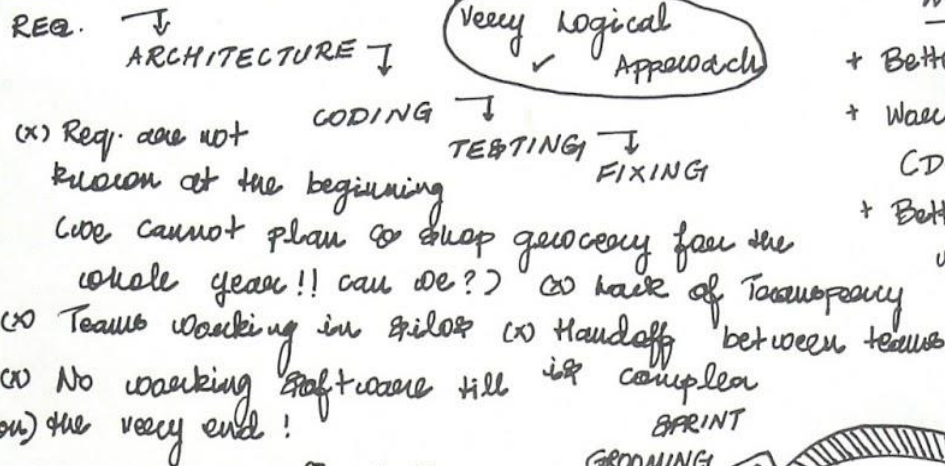 REQ.
ARCHITECTURE
CODING
TESTING
FIXING
Very Logical
✓ Approach
(x) Req. are not
known at the beginning
(we cannot plan & shop grocery for the
whole year!! can we?) (x) Lack of Transparency
(x) Teams working in silos (x) Handoff between teams
(x) No working software till is complex
the very end!
SPRINT
GROOMING
+ Bett
+ War
CD
+ Bett